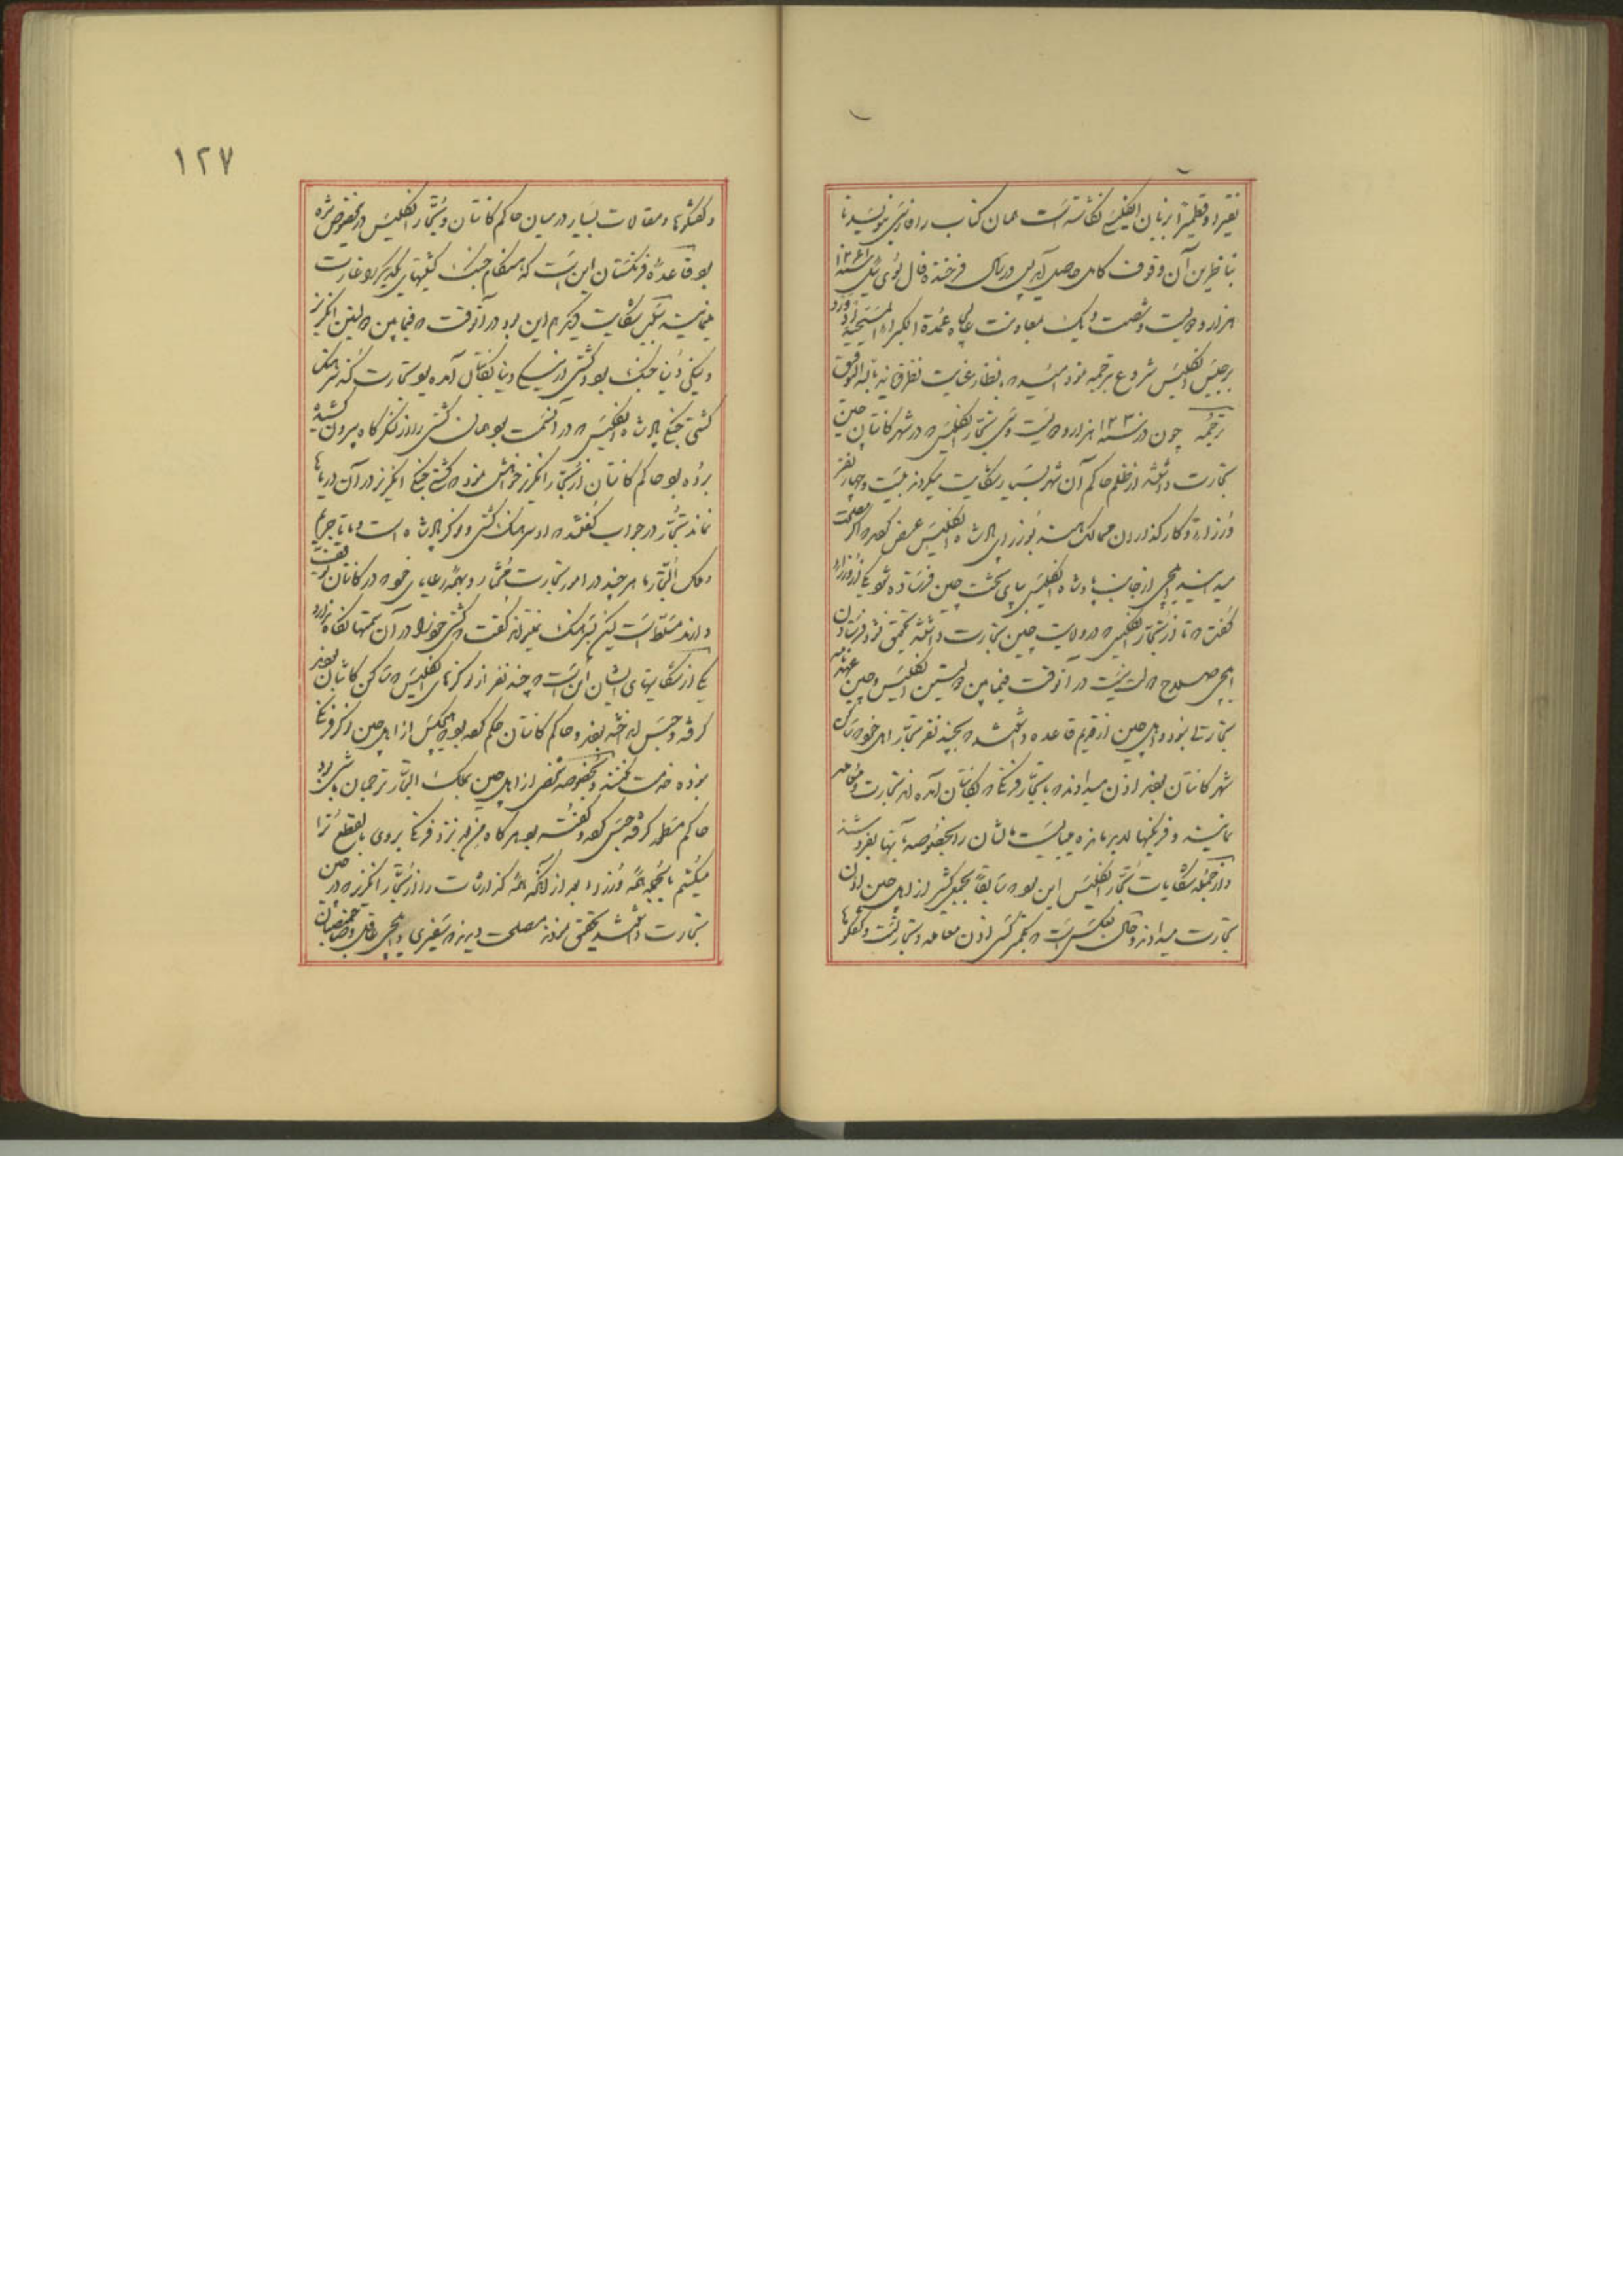 نقیر و قطمیر بزبان انگلیسی نگاشته است همان کتاب را فارسی نویسد تا
بناظرین آن وقوف کامل حاصل آید پس در سال فرخنده فال ئیل سنه ۱۲۶۱
هزار و دویست و شصت و یک بمعاونت عالیجاه عمدة الکبراء المسیحیه
برجیس انگلیس شروع بترجمه نمود امید که بنظر عنایت
ترجمه چون در سنه ۱۲۳۰ هزار و دویست و سی تجار انگلیس که در شهر کانتان چین
تجارت داشتند از ظلم حاکم آن شهر بسیار شکایت میکردند بیست و چهار نفر
وزراء و کارگذاران ممالک هند بوزرای پادشاه انگلیس عرض کردند که اگر مصلحت
میدانید ایلچی از جانب پادشاه انگلیس بپای تخت چین فرستاده شود یکی از وزراء
گفت که تا از تجار انگلیس که در ولایت چین تجارت داشتند تحقیق نشود فرستادن
ایلچی صلاح دولت نیست در آنوقت فیما بین دولتین انگلیس و چین عهدنامه
تجارتی نبود و اهل چین از قدیم قاعده داشتند که بچند نفر تجار اهل خود که ساکن
شهر کانتان بودند اذن میدادند که با تجار فرنگ که بکانتان آمده اند تجارت و معامله
نمایند و فرنگیها لابد بودند میبایست مالشان را بخصوصه بآنها بفروشند
و از جمله شکایات تجار انگلیس این بود که سابقا بجمع کثیر از اهل چین اذن
تجارت میدادند و حال بعکس است که بکمتر کسی اذن معامله و تجارتست و گفتگوها
۱۲۷
و گفتگوها و مقالات بسیار در میان حاکم کانتان و تجار انگلیس درینخصوص شده
بود قاعده فرنگستان این است که هنگام جنگ کشتیهای یکدیگر را غارت
مینمایند شکایت دیگر هم این بود در آنوقت که فیما بین دولتین انگریز
و ینگی دنیا جنگ بود کشتی از ینگی دنیا بکانتان آمده بود بتجارت که سرهنگ
کشتی جنگی پادشاه انگلیس که در آنسمت بود همان کشتی را از لنگرگاه بیرون کشیده
برده بود حاکم کانتان از تجار انگریز خواهش نمود که کشتی جنگی انگریز در آن دریاها
نماند تجار در جواب گفتند که او سرهنگ کشتی و نوکر پادشاه است و ما تاجریم
و ملک التجار ما هر چند در امور تجارت مختار و بهمه رعایای خود که در کانتان توقف
دارند مسلط است لیکن بسرهنگ نمیتواند گفت که کشتی خود را در آن سمتها نگاه ندارد
یکی از شکایتهای ایشان این است که چند نفر از نوکرهای انگلیس که ساکن کانتان بودند
گرفته و حبس انداخته بودند و حاکم کانتان حکم کرده بود که هیچکس از اهل چین نوکر فرنگی
نبوده خدمت نکنند و بخصوصه شخصی از اهل چین بملک التجار ترجمان باشی بود
حاکم مطلع گشته گرفته حبس کرده و گفته بود هرگاه من بعد نزد فرنگی بروی بالقطع ترا
میکشم بالجمله همه وزراء بعد از آنکه همه گذارشات را از تجار انگریز که در چین
تجارت داشتند تحقیق نمودند مصلحت دیدند که سفیری و ایلچی عاقل و صاحبمنصبان